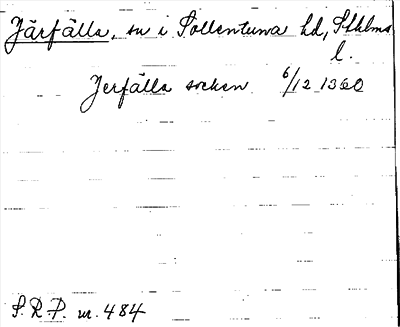 Järfälla, sn i Sollentuna hd, Sthlms
l.
Jerfälla socken 6/12 1360
S.R.P. nr. 484